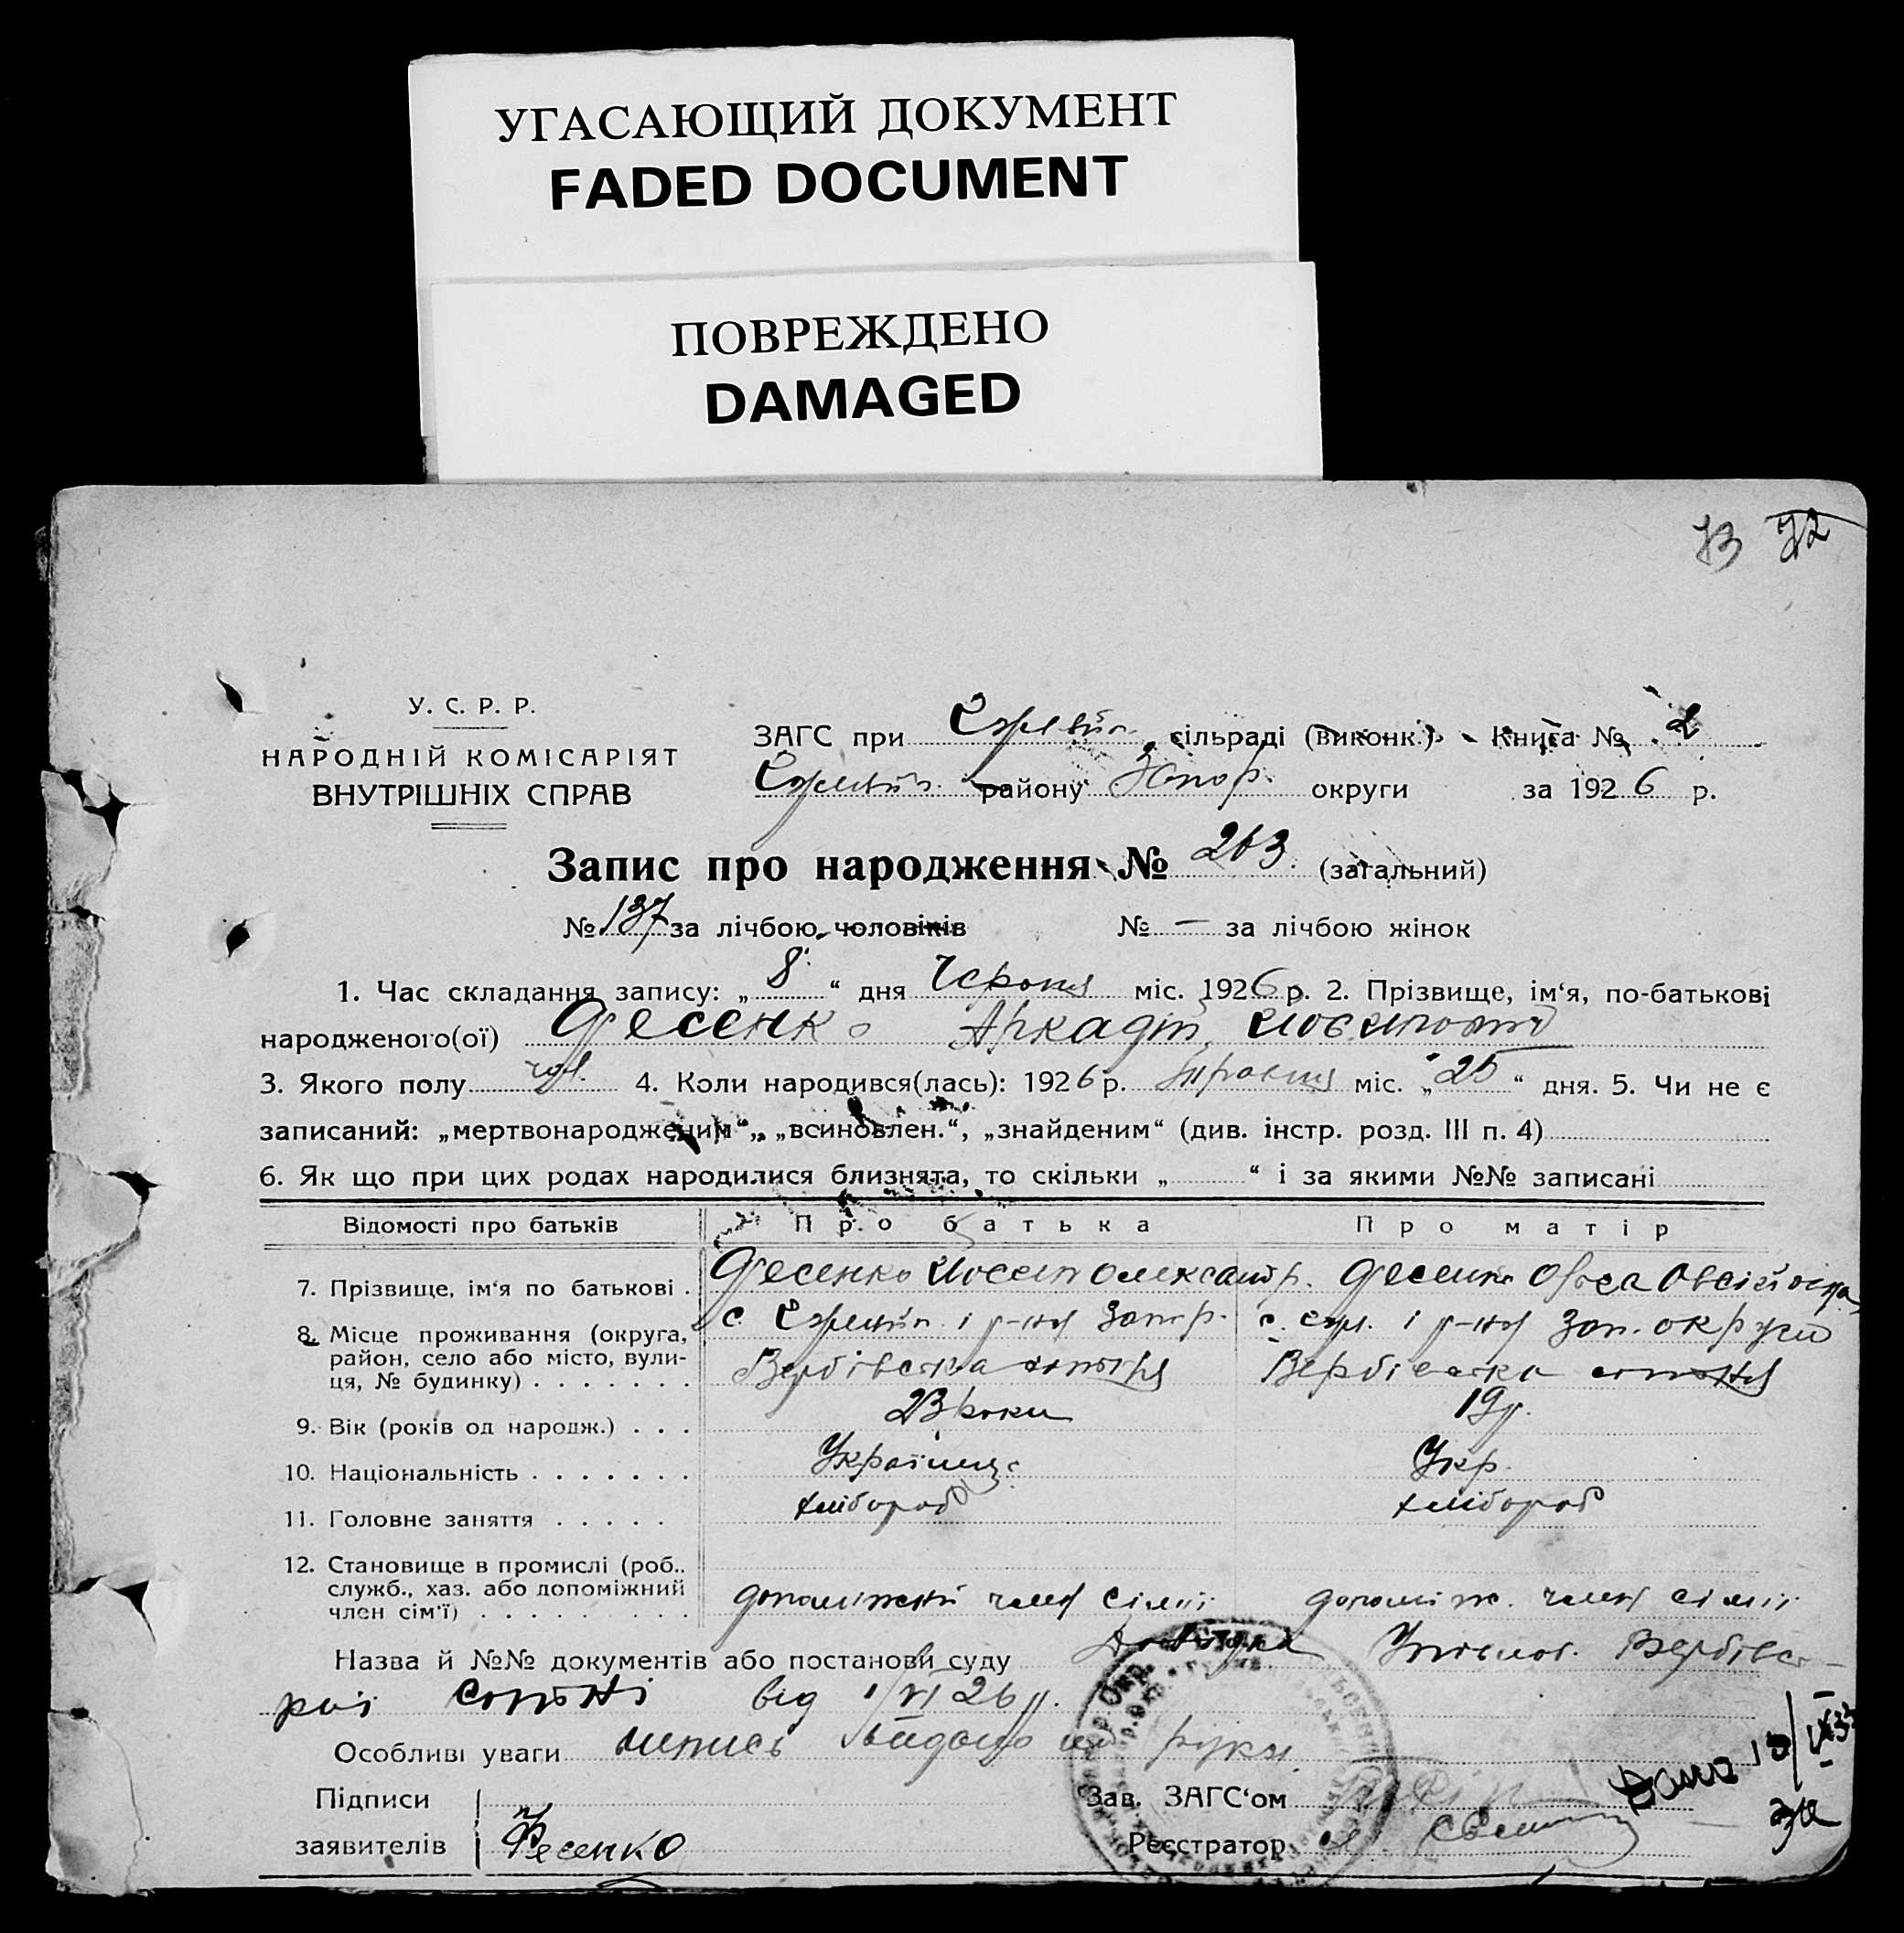 УГАСАЮЩИЙ ДОКУМЕНТ
FADED DOCUMENT
ПОВРЕЖДЕНО
DAMAGED
73 72
У. С. Р. Р.
НАРОДНІЙ КОМІСАРІЯТ
ВНУТРІШНІХ СПРАВ
ЗАГС при сільраді (виконк.) Книга № 2
району Запор. округи за 1926 р.
Запис про народження № 263 (загальний)
№ 137 за лічбою чоловіків № — за лічбою жінок
1. Час складання запису: „8“ дня Червня міс. 1926 р. 2. Прізвище, ім‘я, по-батькові
народженого(ої) Фесенко Аркадій
3. Якого полу чол. 4. Коли народився(лась): 1926 р. міс. „25“ дня. 5. Чи не є
записаний: „мертвонародженим“, „всиновлен.“, „знайденим“ (див. інстр. розд. III п. 4)
6. Як що при цих родах народилися близнята, то скільки „ “ і за якими №№ записані
Відомості про батьків Про батька Про матір
7. Прізвище, ім‘я по батькові . Фесенко Иосип Олександр. Фесенко
8. Місце проживання (округа, с. і р-ну Запор. с. і р-ну Зап. округи
район, село або місто, вули- Вербівська Вербівська
ця, № будинку) . . . . . . .
9. Вік (років од народж.) . . . 23 роки 19 р.
10. Національність . . . . . . . Українец Укр.
11. Головне заняття . . . . . хлібороб хлібороб
12. Становище в промислі (роб.,
служб., хаз. або допоміжний
член сім‘ї) . . . . . . . . . допоміжний член сімії допоміж. член сімії
Назва й №№ документів або постанови суду Довідка Вербівсь-
кої від 1/VI 26 р.
Особливі уваги випись видано на руки
Підписи
заявителів Фесенко
Зав. ЗАГС‘ом
Реєстратор